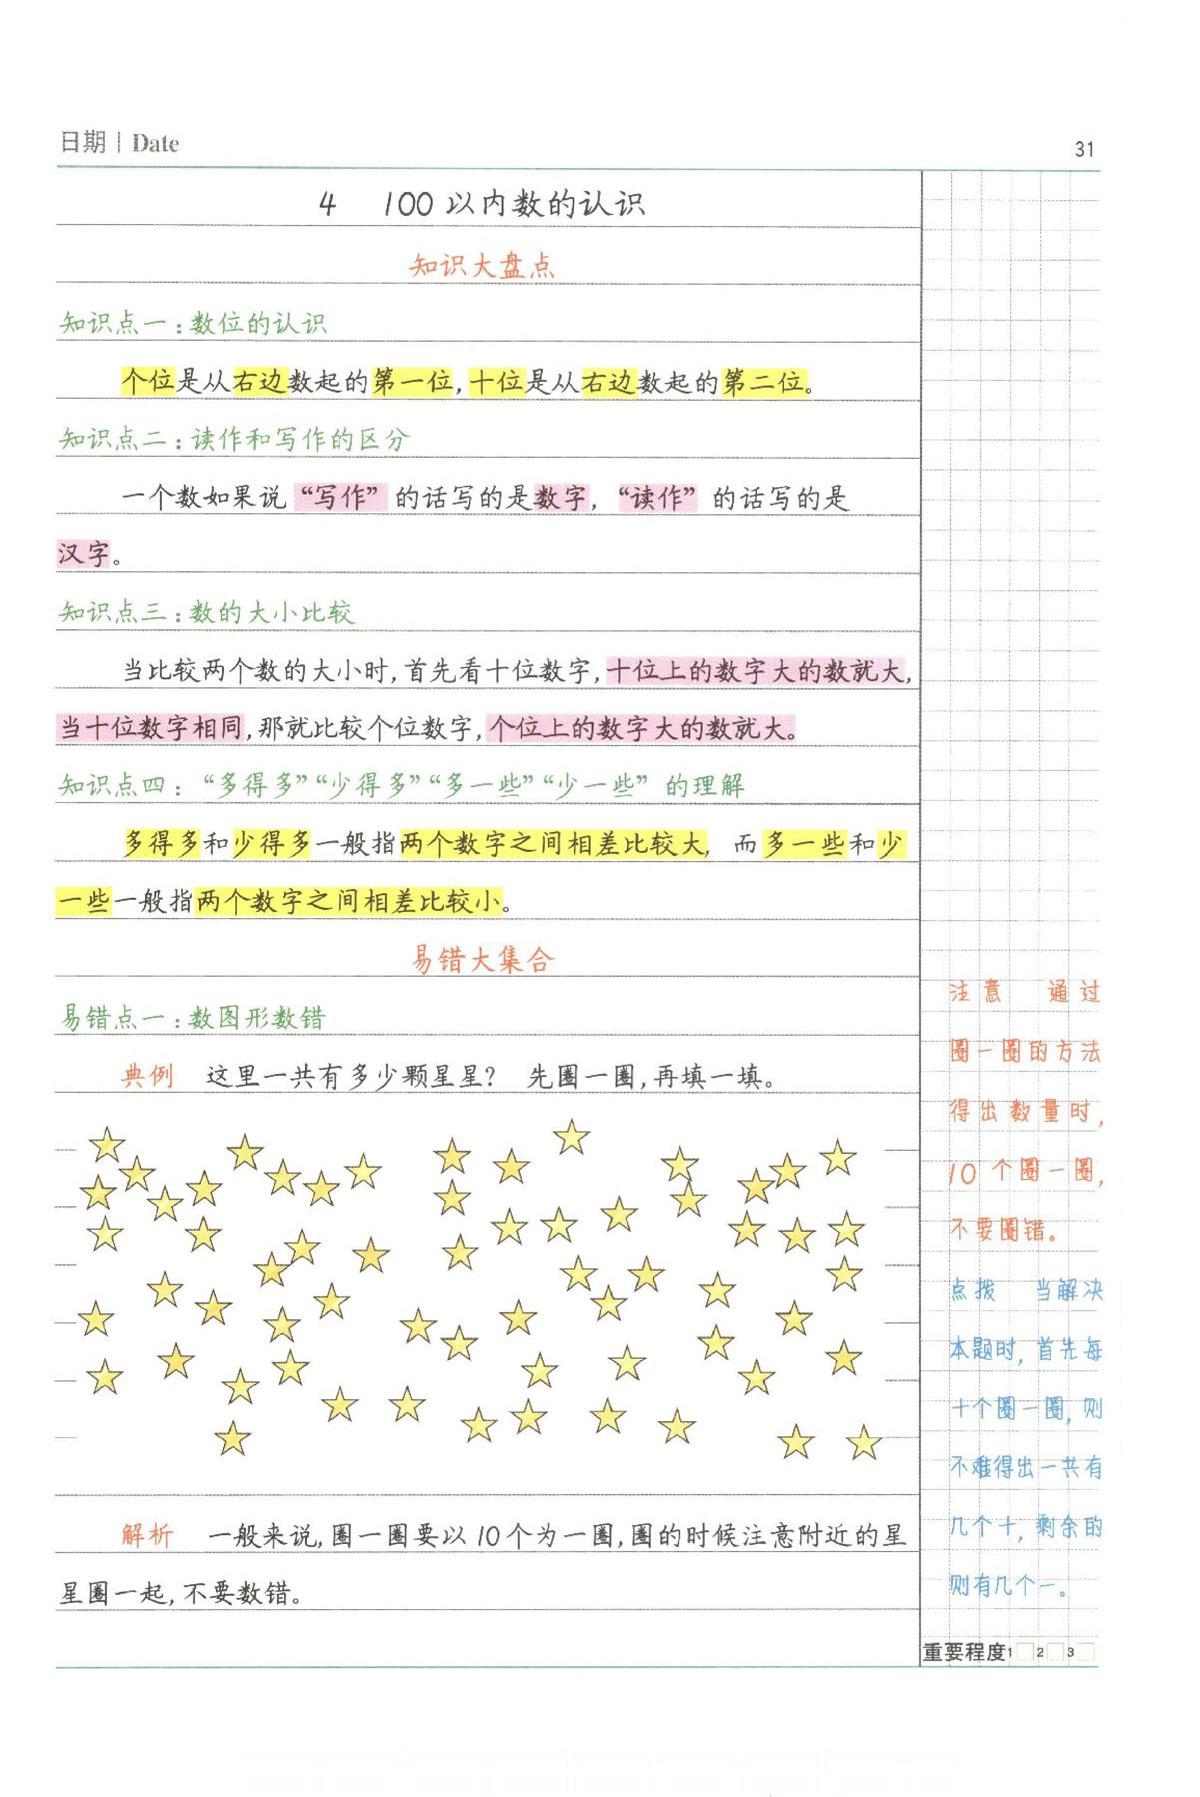 日期 | Date
31
4 100以内数的认识
知识大盘点
知识点一：数位的认识
个位是从右边数起的第一位，十位是从右边数起的第二位。
知识点二：读作和写作的区分
一个数如果说“写作”的话写的是数字，“读作”的话写的是
汉字。
知识点三：数的大小比较
当比较两个数的大小时，首先看十位数字，十位上的数字大的数就大，
当十位数字相同，那就比较个位数字，个位上的数字大的数就大。
知识点四：“多得多”“少得多”“多一些”“少一些”的理解
多得多和少得多一般指两个数字之间相差比较大，而多一些和少
一些一般指两个数字之间相差比较小。
易错大集合
易错点一：数图形数错
典例 这里一共有多少颗星星？ 先圈一圈，再填一填。
解析 一般来说，圈一圈要以10个为一圈，圈的时候注意附近的星
星圈一起，不要数错。
注意 通过
圈一圈的方法
得出数量时，
10个圈一圈，
不要圈错。
点拨 当解决
本题时，首先每
十个圈一圈，则
不难得出一共有
几个十，剩余的
则有几个一。
重要程度 1 2 3